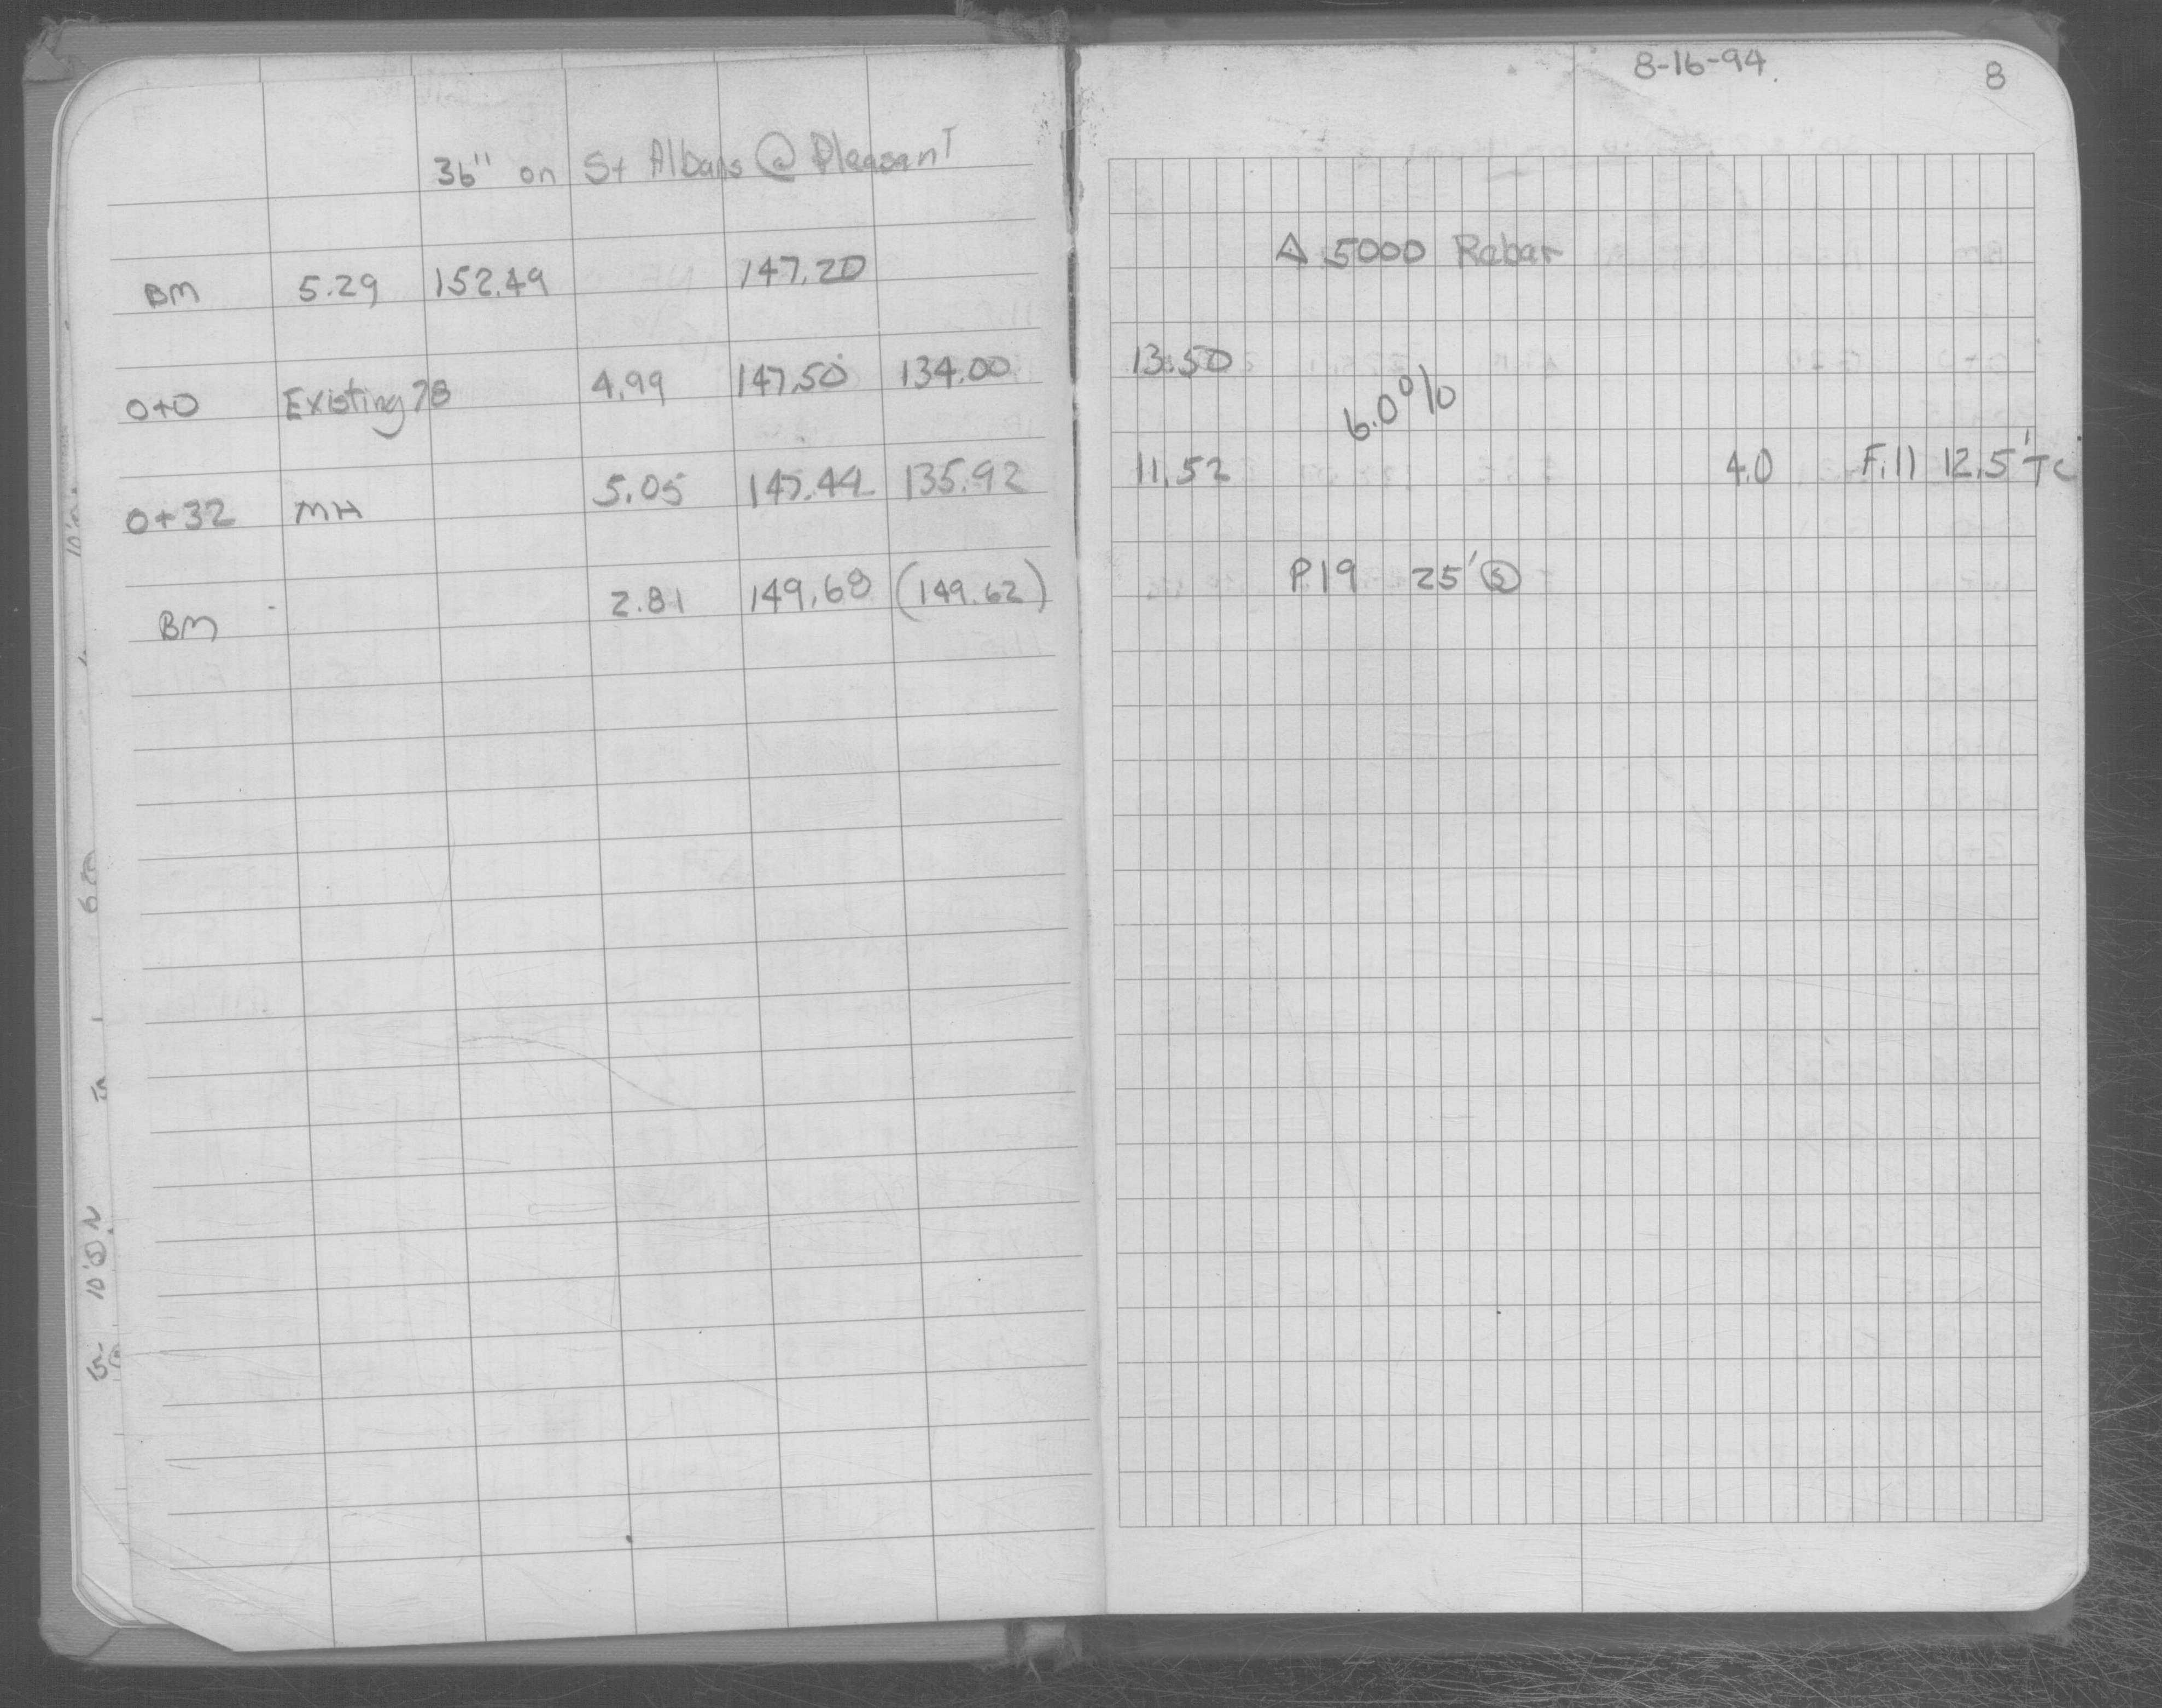 36" on St Albans @ Pleasant
BM 5.29 152.49 147.20
0+0 Existing 78 4.99 147.50 134.00
0+32 MH 5.05 147.44 135.92
BM 2.81 149.68 (149.62)
8-16-94. 8
△ 5000 Rebar
13.50
6.0%
11.52 4.0 Fill 12.5' TC
P19 25' Ⓢ